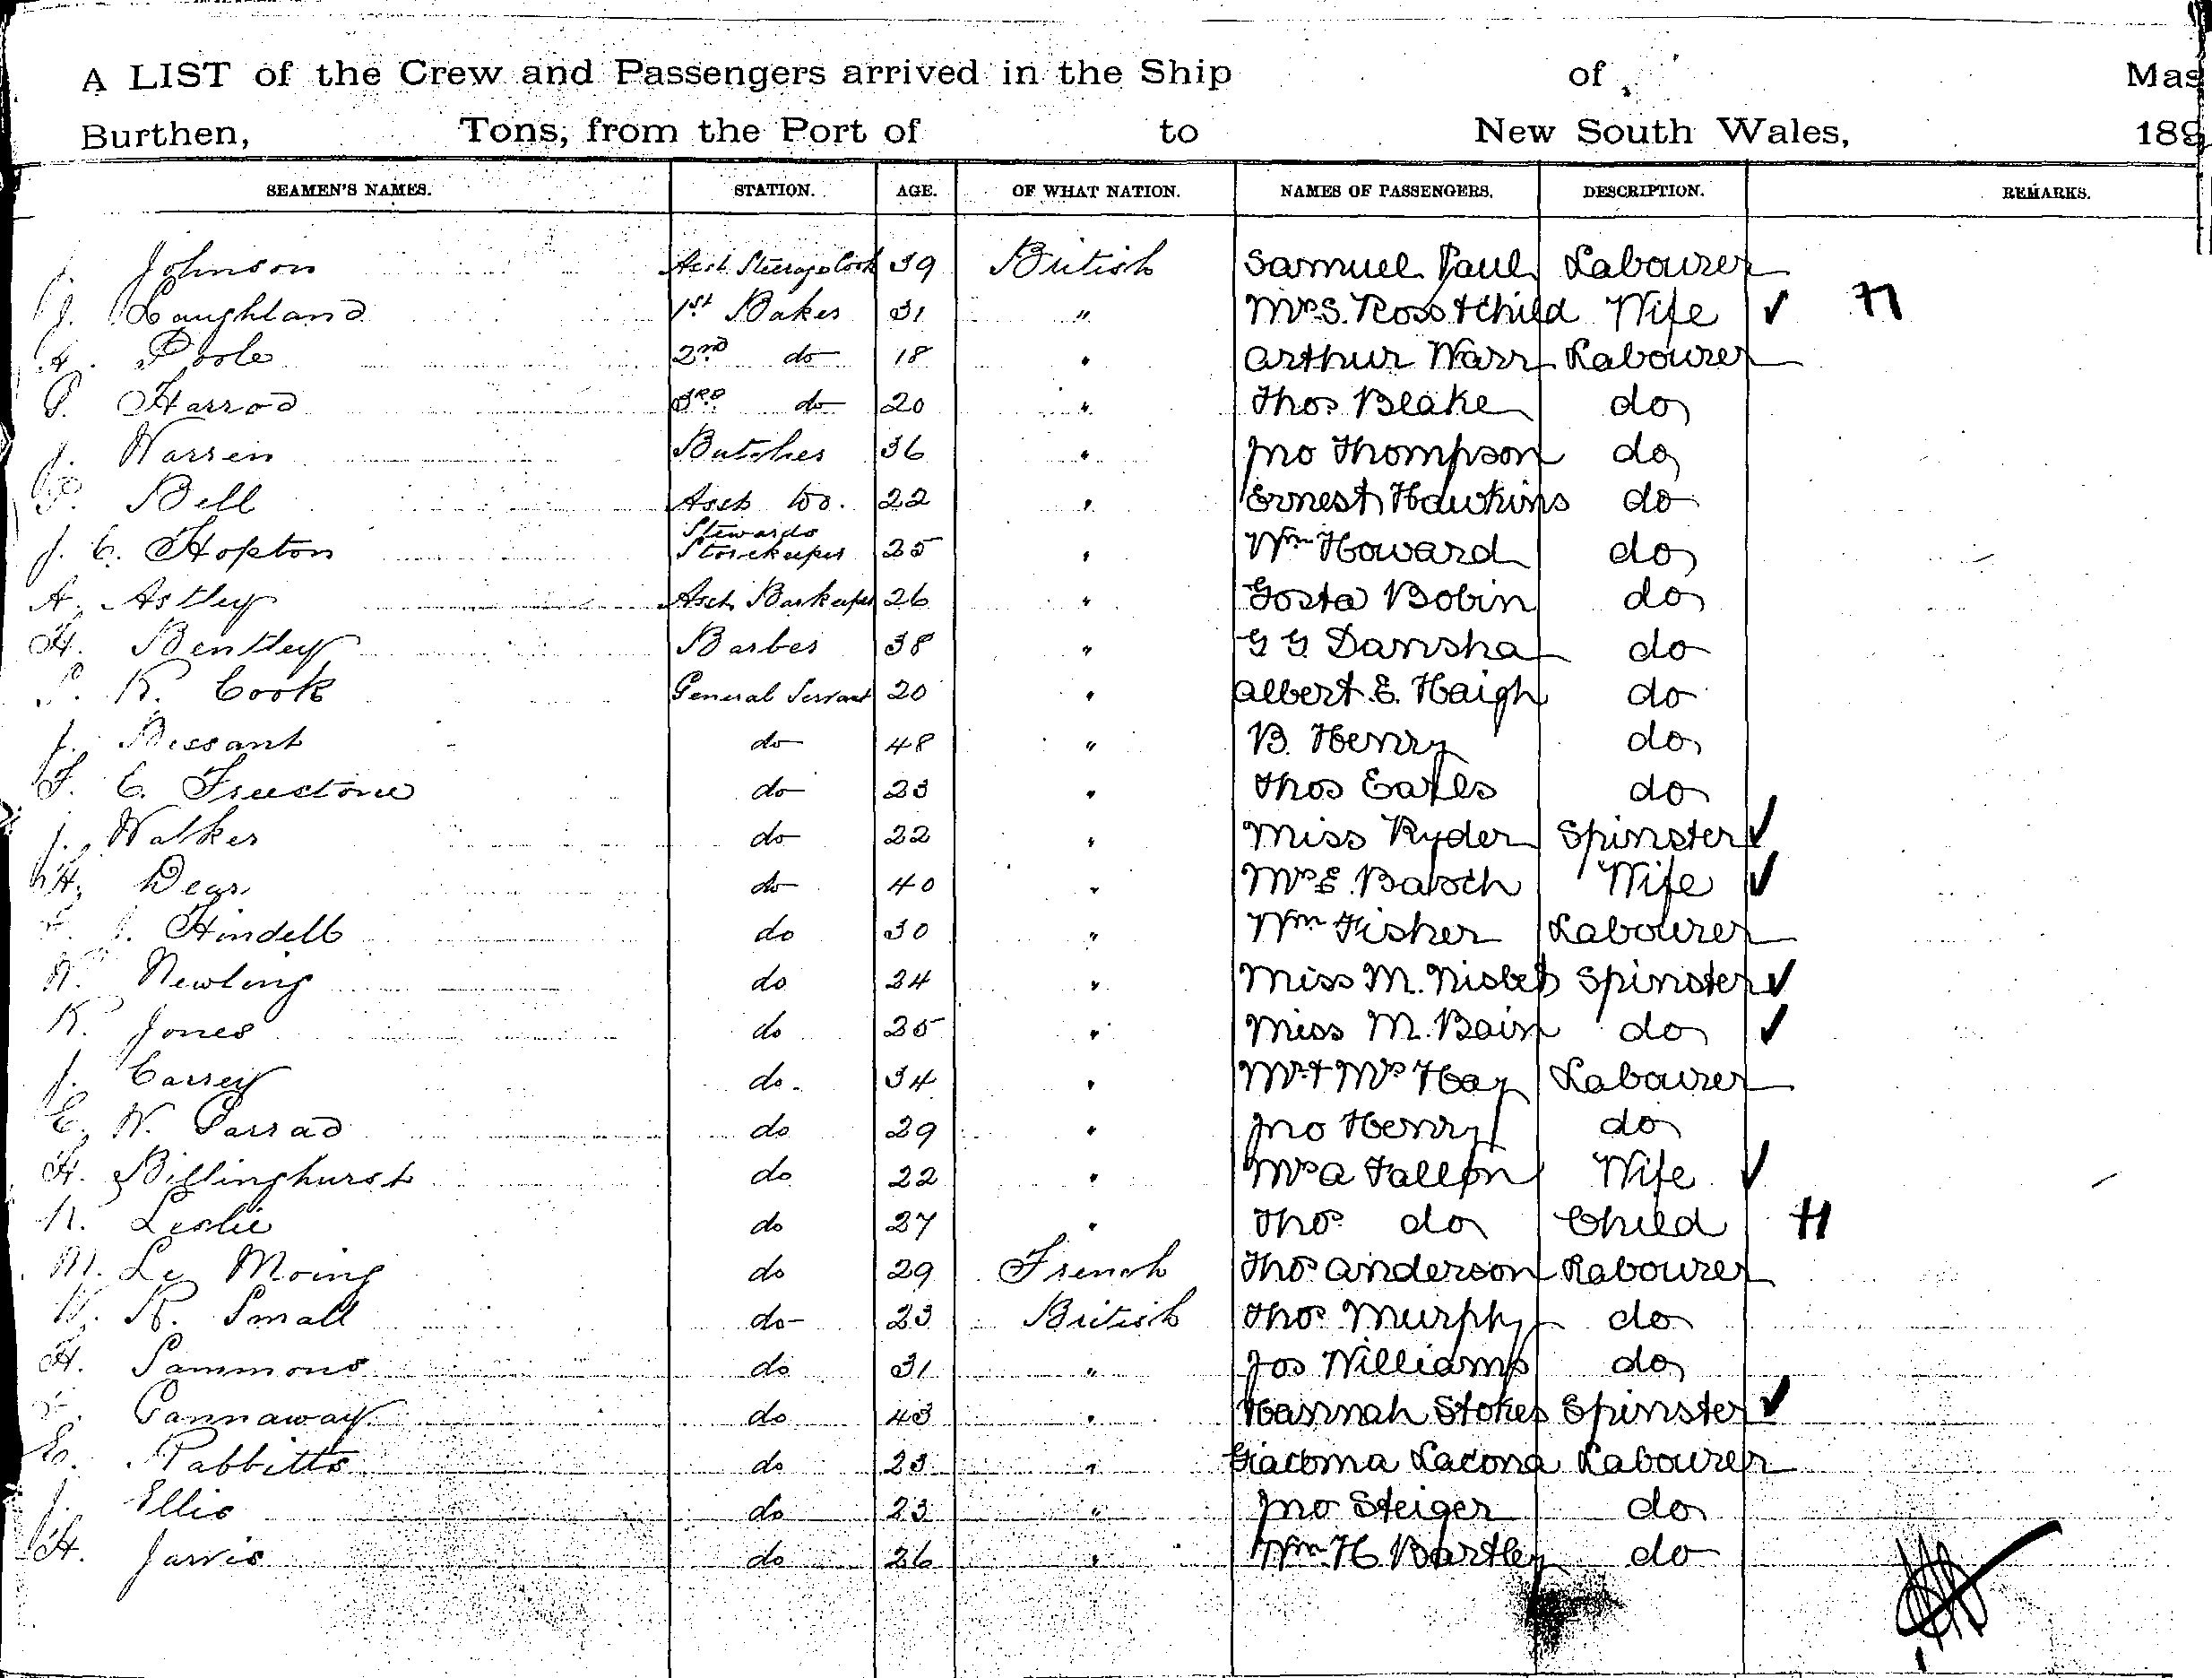 A LIST of the Crew and Passengers arrived in the Ship of Mas
Burthen, Tons, from the Port of to New South Wales, 189
SEAMEN'S NAMES. STATION. AGE. OF WHAT NATION. NAMES OF PASSENGERS. DESCRIPTION. REMARKS.
J. Johnson Asst Steerage Cook 39 British Samuel Paul Labourer
J. Laughland 1st Baker 31 " Mrs. Ross + Child Wife ✓ H
A. Poole 2nd do 18 " Arthur Warr Labourer
P. Harrod 3rd do 20 " Thos Blake do
J. Warren Butcher 36 " Jno Thompson do
Bell Asst do. 22 " Ernest Hawkins do
J. C. Hopton Stewards Storekeeper 25 " Wm Howard do
A. Astley Asst Barkeeper 26 " Gosta Bobin do
H. Bentley Barber 38 " G G Dansha do
R. Cook General Servant 20 " Albert E. Haigh do
J. Bissant do 48 " B. Henry do
F. C. Freestone do 23 " Thos Earls do
J. Walker do 22 " Miss Ryder Spinster ✓
H. Dear do 40 " Mrs E. Batsch Wife ✓
Hindell do 30 " Wm Fisher Labourer
W. Newling do 24 " Miss M. Nisbet Spinster ✓
R. Jones do 25 " Miss M. Bain do ✓
J. Carrey do. 34 " Mr + Mrs Hay Labourer
E. W. Parrad do 29 " Jno Henry do
H. Billinghurst do 22 " Mrs A Fallon Wife ✓
Leslie do 27 " Thos do Child H
M. Le Moing do 29 French Thos Anderson Labourer
W. R. Small do 23 British Thos Murphy do
H. Sammons do 31 " Jos Williams do
Cannaway do 43 " Hannah Stokes Spinster ✓
E. Rabbitts do 23 " Giacoma Lacona Labourer
J. Ellis do 23 " Jno Steiger do
H. Jarvis do 26 " Wm H Bartley do